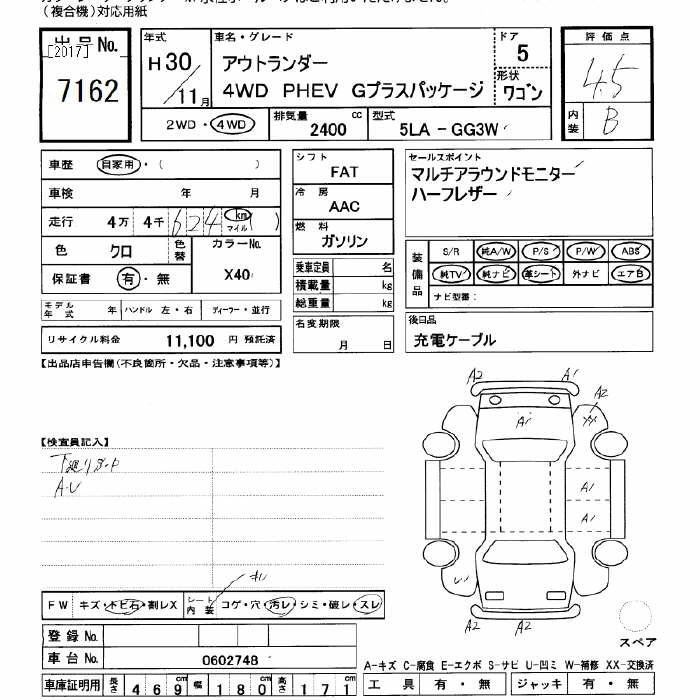 (複合機)対応用紙
出品No.
[2017]
7162
年式
H30/11月
車名・グレード
アウトランダー
4WD PHEV Gプラスパッケージ
ドア
5
形状
ワゴン
評価点
4.5
内装
B
2WD・4WD
排気量 2400 cc
型式 5LA-GG3W
車歴 自家用・( )
車検 年 月
走行 4万 4千 624 km マイル ( )
色 クロ 色替 カラーNo. X40
保証書 有・無
モデル年式 年 ハンドル 左・右 ディーラー・並行
リサイクル料金 11,100 円 預託済
シフト
FAT
冷房
AAC
燃料
ガソリン
乗車定員 名
積載量 kg
総重量 kg
名変期限
月 日
セールスポイント
マルチアラウンドモニター
ハーフレザー
装備品
S/R 純A/W P/S P/W ABS
純TV 純ナビ 革シート 外ナビ エアB
ナビ型番:
後日品
充電ケーブル
【出品店申告欄(不良箇所・欠品・注意事項等)】
【検査員記入】
A.U
A2 A1 A2
A1 XX
A1
A1
A2 A2
FW キズ・トビ石・割レX
シート内装 コゲ・穴・汚レ・シミ・破レ・スレ
登録No.
車台No. 0602748
車庫証明用 長さ 469 cm 幅 180 cm 高さ 171 cm
スペア
A-キズ C-腐食 E-エクボ S-サビ U-凹ミ W-補修 XX-交換済
工具 有・無 ジャッキ 有・無